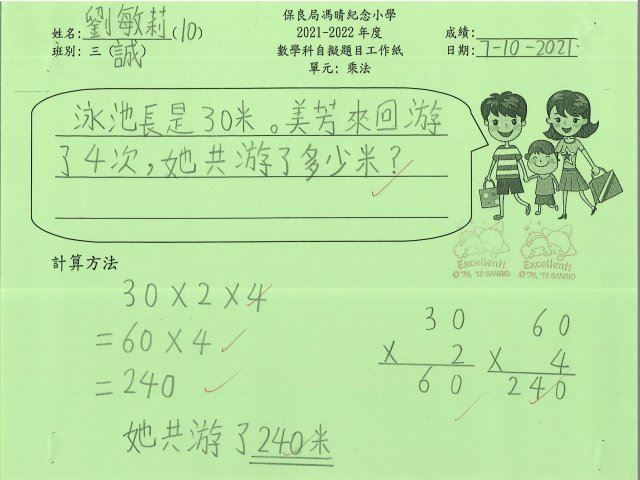 保良局馮晴紀念小學
姓名: 劉敏莉(10) 2021-2022 年度 成績:
班別: 三 (誠) 數學科自擬題目工作紙 日期: 7-10-2021
單元: 乘法
泳池長是30米。美芳來回游
了4次,她共游了多少米?
Excellent! Excellent!
© '76, '12 SANRIO © '76, '12 SANRIO
計算方法
30 X 2 X 4
= 60 X 4
= 240
30
X 2
60
60
X 4
240
她共游了240米